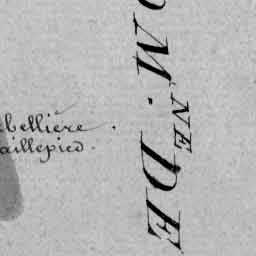 bellière.
aillepied.
OM. NE DE